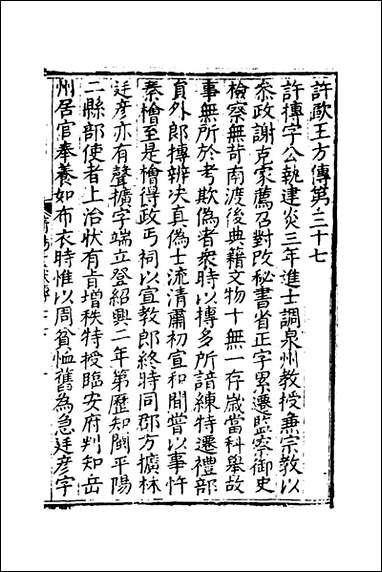 許歐王方傳第三十七
許摶字公執建炎三年進士調泉州教授兼宗教以
叅政謝克家薦召對改秘書省正字累遷監察御史
檢察無苛南渡後典籍文物十無一存歲當科舉故
事無所於考欺偽者衆時以摶多所諳練特遷禮部
員外郎摶辨决真偽士流清肅初宣和間嘗以事忤
秦檜至是檜得政丐祠以宣教郎終時同郡方擴林
廷彦亦有聲擴字端立登紹興二年第歷知閩平陽
二縣部使者上治狀有㫖增秩特授臨安府判知岳
州居官奉養如布衣時惟以周貧恤舊為急廷彦字